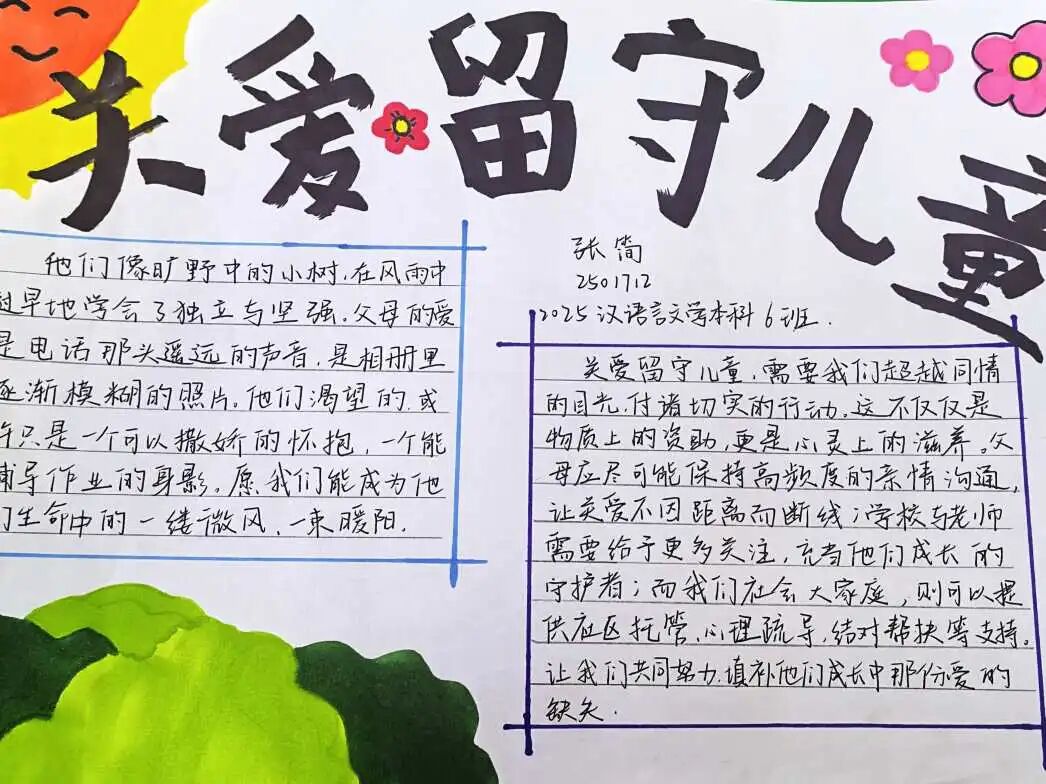 关爱留守儿童
他们像旷野中的小树，在风雨中
过早地学会了独立与坚强。父母的爱
是电话那头遥远的声音，是相册里
逐渐模糊的照片。他们渴望的，或
许只是一个可以撒娇的怀抱，一个能
辅导作业的身影。愿我们能成为他
们生命中的一缕微风，一束暖阳.
张简
2501712
2025汉语言文学本科6班.
关爱留守儿童，需要我们超越同情
的目光，付诸切实的行动。这不仅仅是
物质上的资助，更是心灵上的滋养。父
母应尽可能保持高频度的亲情沟通，
让关爱不因距离而断线；学校与老师
需要给予更多关注，充当他们成长的
守护者；而我们社会大家庭，则可以提
供社区托管、心理疏导、结对帮扶等支持。
让我们共同努力，填补他们成长中那份爱的
缺失.